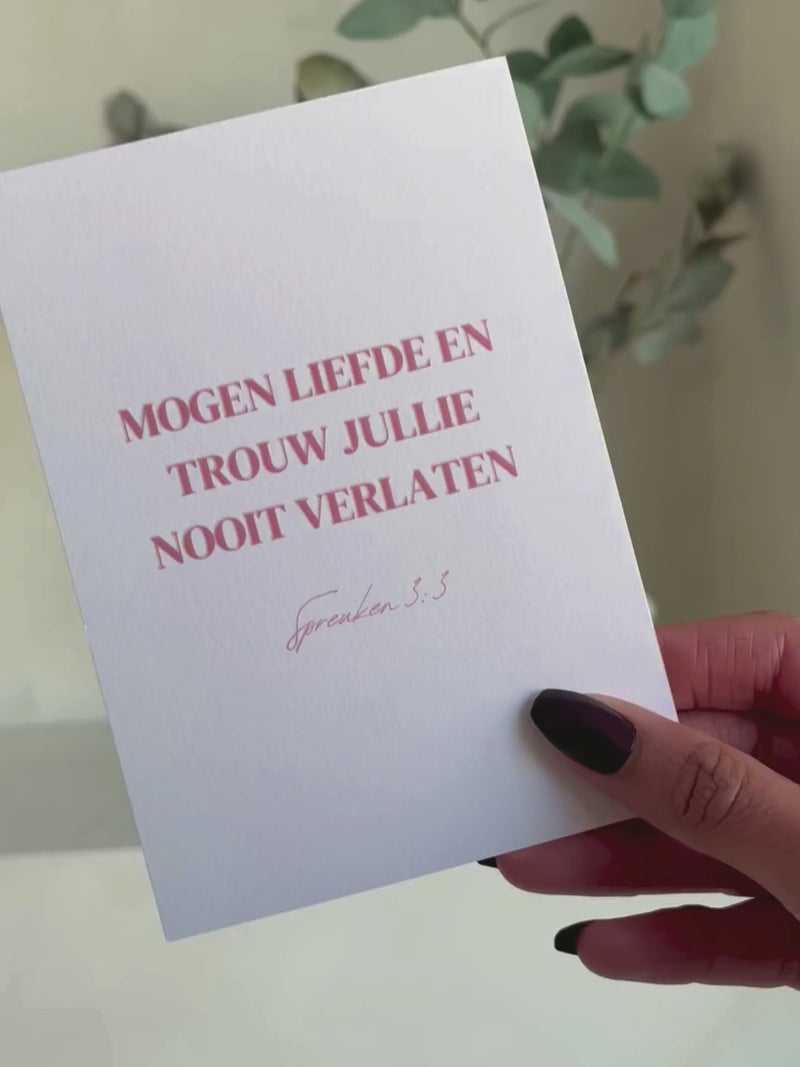 MOGEN LIEFDE EN
TROUW JULLIE
NOOIT VERLATEN
Spreuken 3:3